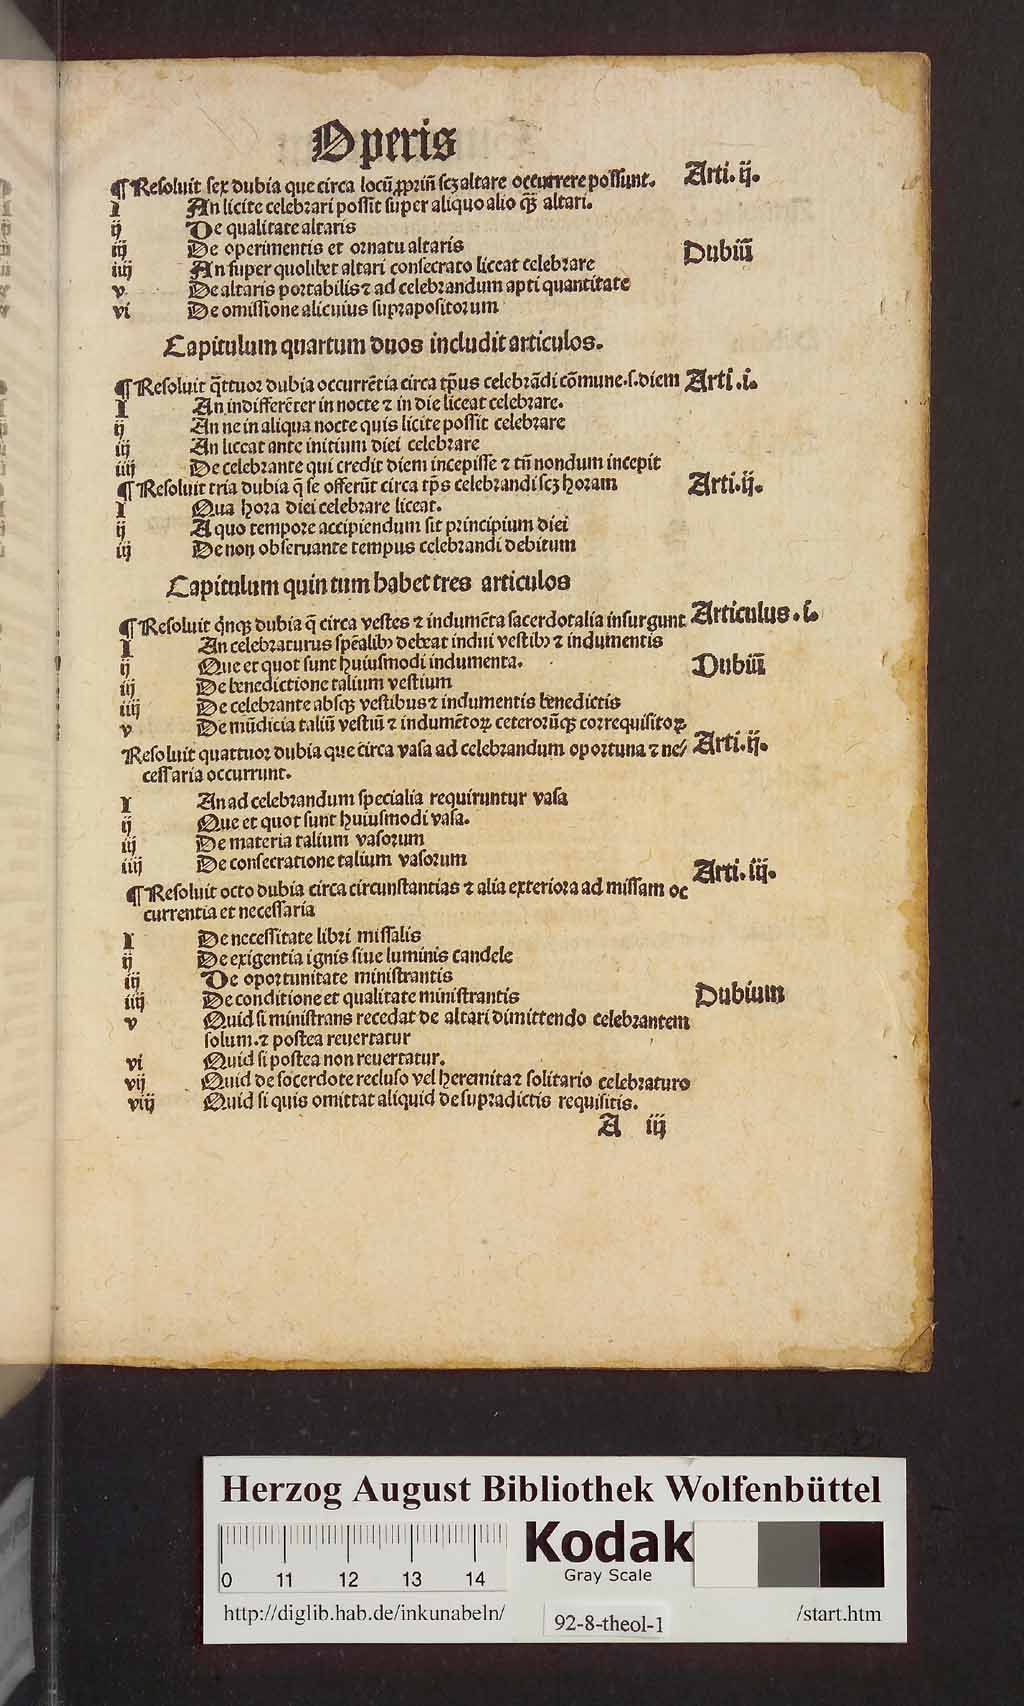 Operis
¶ Resoluit sex dubia que circa locū ꝓpriū scꝫ altare occurrere possunt. Arti. ij.
I An licite celebrari possit super aliquo alio qȝ̄ altari.
ij De qualitate altaris
iij De operimentis et ornatu altaris
Dubiū
iiij An super quolibet altari consecrato liceat celebrare
v De altaris portabilis ⁊ ad celebrandum apti quantitate
vi De omissione alicuius suprapositorum
Capitulum quartum duos includit articulos.
¶ Resoluit q̄ttuor dubia occurrētia circa tp̄us celebrādi cōmune .s. diem Arti .i.
I An indifferēter in nocte ⁊ in die liceat celebrare.
ij An ne in aliqua nocte quis licite possit celebrare
iij An liceat ante initium diei celebrare
iiij De celebrante qui credit diem incepisse ⁊ tn̄ nondum incepit
¶ Resoluit tria dubia q̄ se offerūt circa tp̄s celebrandi scꝫ horam Arti. ij.
I Qua hora diei celebrare liceat.
ij A quo tempore accipiendum sit principium diei
iij De non obseruante tempus celebrandi debitum
Capitulum quin tum habet tres articulos
¶ Resoluit qͥnqȝ dubia q̄ circa vestes ⁊ indumēta sacerdotalia insurgunt Articulus .i.
I An celebraturus spēalibꝫ debeat indui vestibꝫ ⁊ indumentis
ij Que et quot sunt huiusmodi indumenta.
Dubiū
iij De benedictione talium vestium
iiij De celebrante absqȝ vestibus ⁊ indumentis benedictis
v De mūdicia taliū vestiū ⁊ indumētoꝝ ceterorūqȝ correquisitoꝝ
Resoluit quattuor dubia que circa vasa ad celebrandum oportuna ⁊ ne/ Arti. ij.
cessaria occurrunt.
I An ad celebrandum specialia requiruntur vasa
ij Que et quot sunt huiusmodi vasa.
iij De materia talium vasorum
iiij De consecratione talium vasorum
Arti. iij.
¶ Resoluit octo dubia circa circunstantias ⁊ alia exteriora ad missam oc
currentia et necessaria
I De necessitate libri missalis
ij De exigentia ignis siue luminis candele
iij De oportunitate ministrantis
iiij De conditione et qualitate ministrantis
Dubium
v Quid si ministrans recedat de altari dimittendo celebrantem
solum. ⁊ postea reuertatur
vi Quid si postea non reuertatur.
vij Quid de socerdote recluso vel heremita ⁊ solitario celebraturo
viij Quid si quis omittat aliquid de supradictis requisitis.
A iij
Herzog August Bibliothek Wolfenbüttel
0 11 12 13 14
Kodak
Gray Scale
http://diglib.hab.de/inkunabeln/
92-8-theol-1
/start.htm